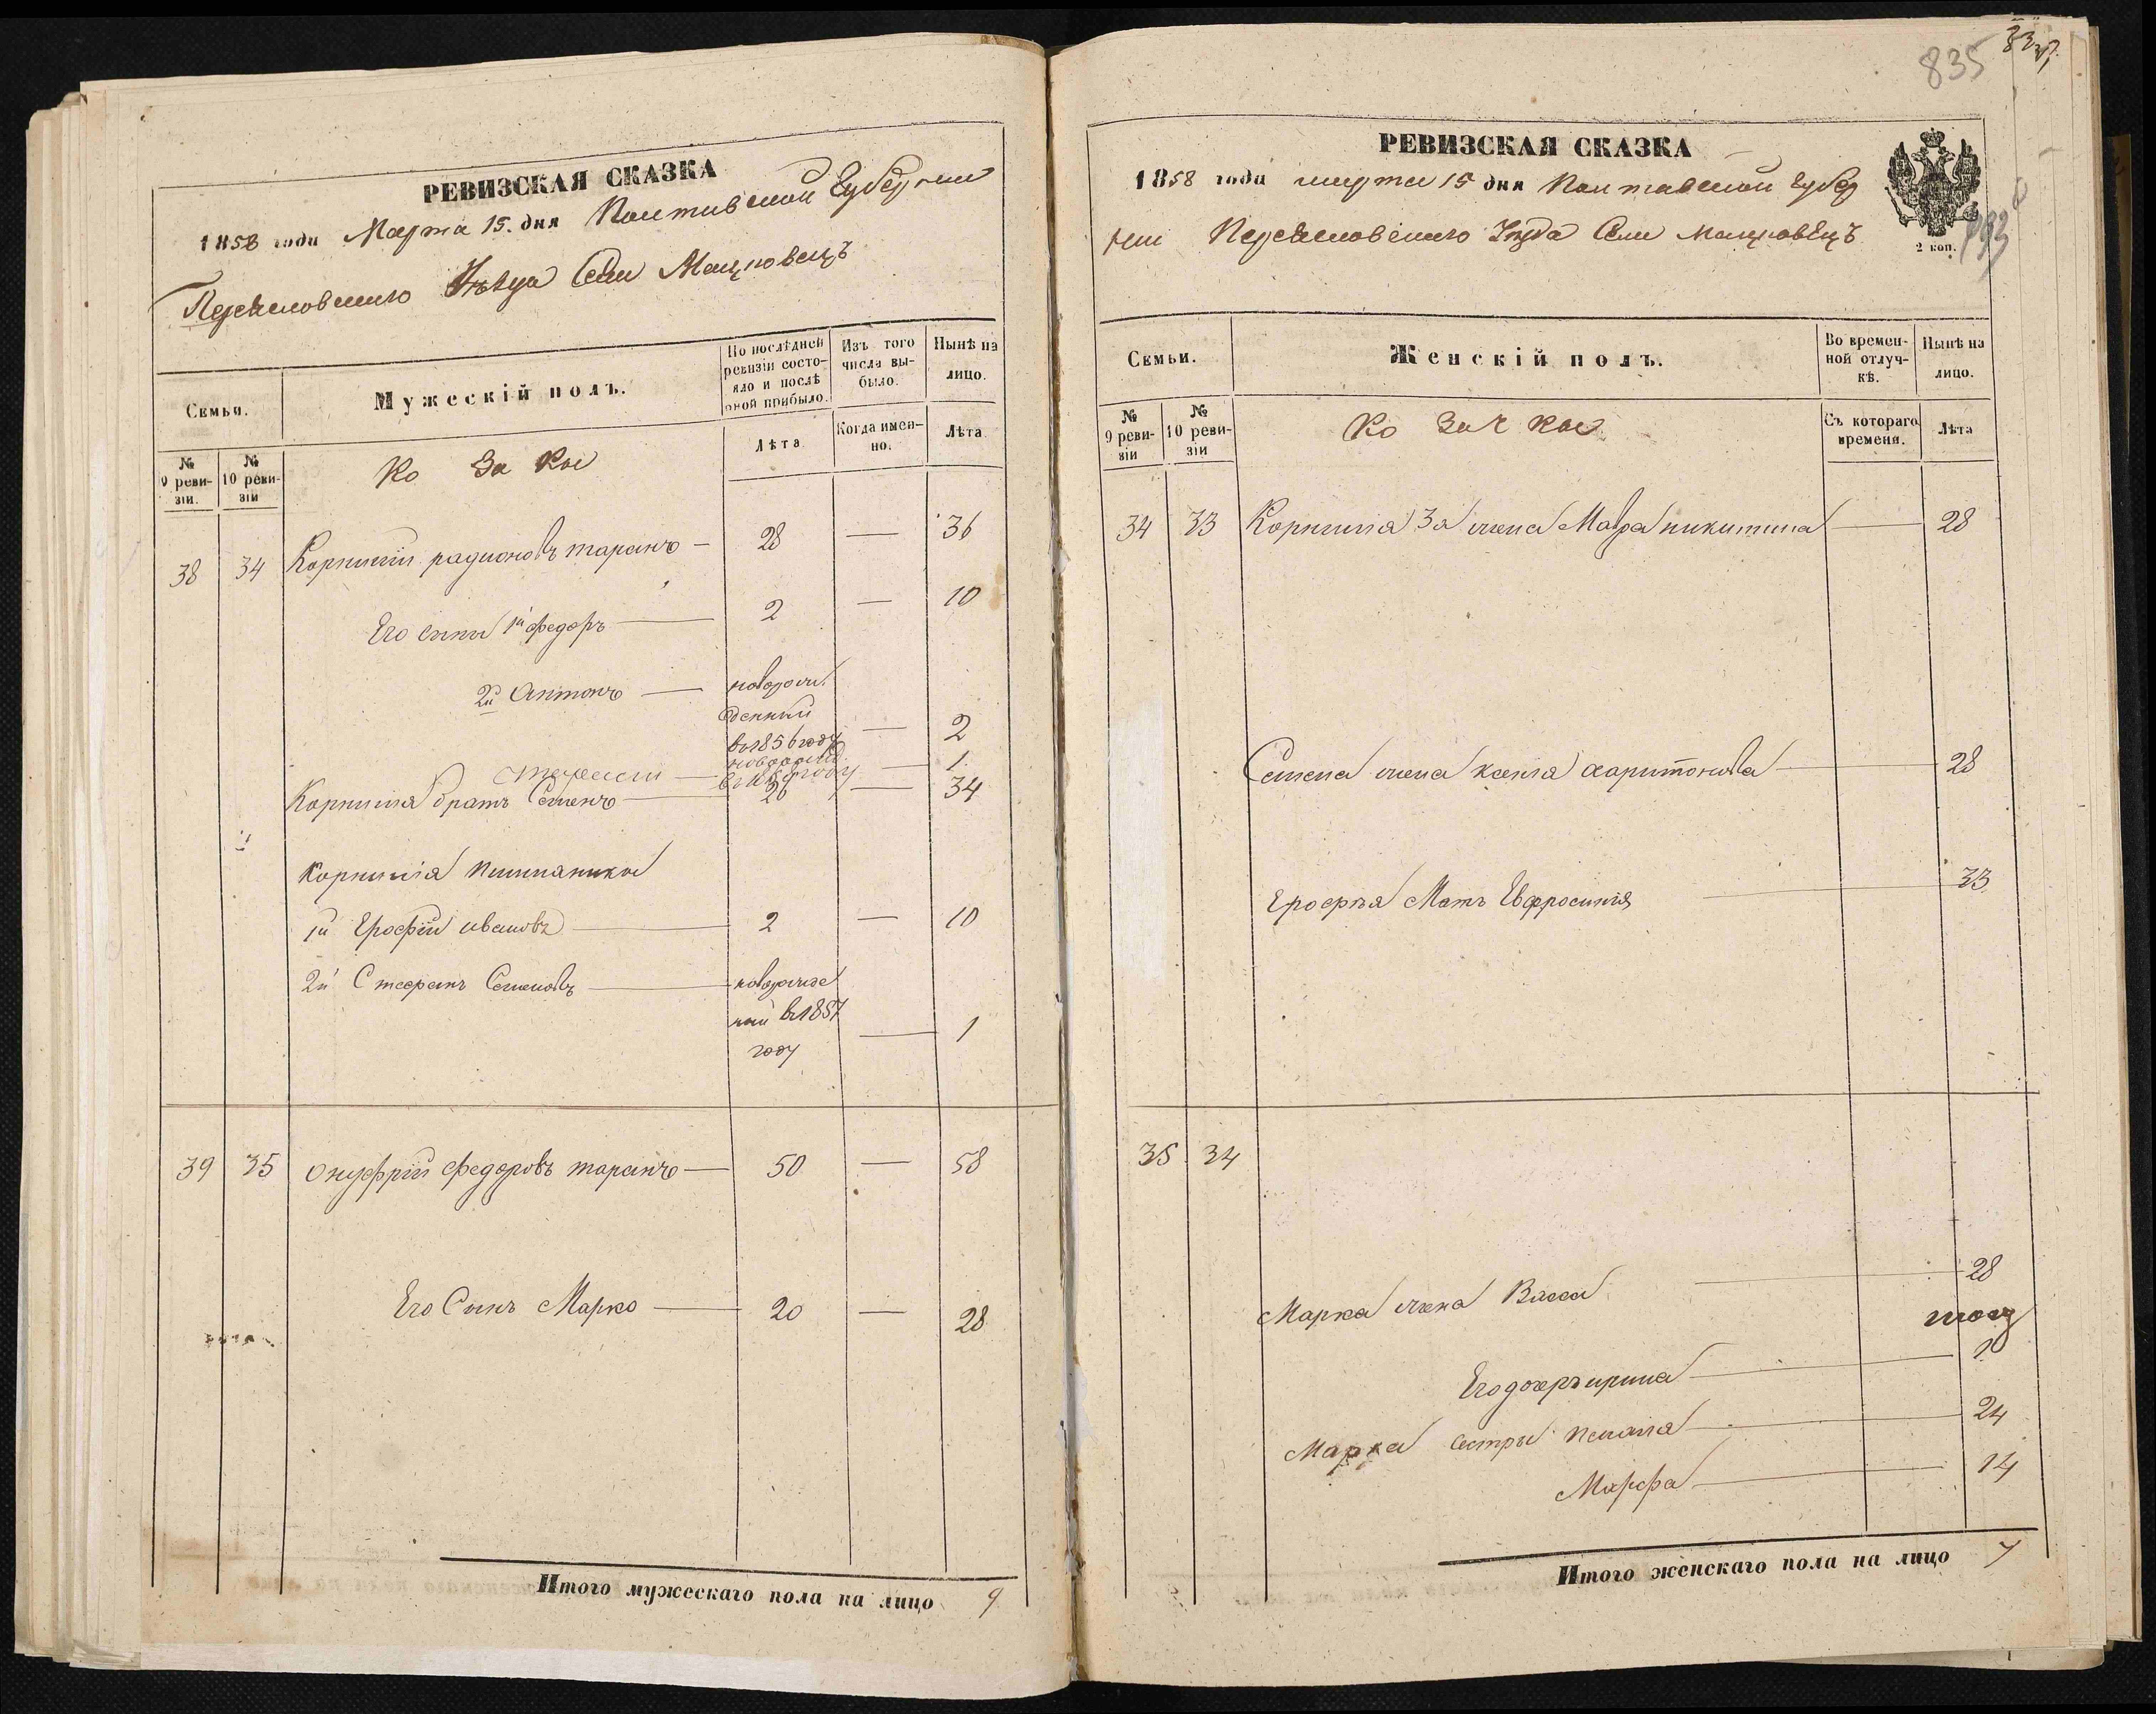 РЕВИЗСКАЯ СКАЗКА
1858 года Марта 15. дня Полтавской Губернии
Переяславского Уезда Села Мацковецъ
Семьи.
Мужескій полъ.
По послѣдней ревизіи состояло и послѣ оной прибыло.
Изъ того числа выбыло.
Нынѣ на лицо.
№ 9 ревизіи.
№ 10 ревизіи
Козаки
Лѣта
Когда именно.
Лѣта
38 34 Корнилій радионовъ таранъ — 28 — 36
Его сыны 1й федоръ — 2 — 10
2й Антонъ — новорож
денный
въ 1856 году — 2
новорожд.
въ году — 1
Корнилія братъ Семенъ — 26 — 34
Корнилія племянники
1й Ерофій ивановъ — 2 — 10
2й Стефанъ Семеновъ — новорожде
ный в 1857
году — 1
39 35 Онуфрій Федоровъ таранъ — 50 — 58
Его Сынъ Марко — 20 — 28
Итого мужескаго пола на лицо 9
835
РЕВИЗСКАЯ СКАЗКА
1858 года марта 15 дня Полтавской Губер
нии Переяславского Уезда Села Мацковецъ
2 коп.
Семьи.
Женскій полъ.
Во временной отлучкѣ.
Нынѣ на лицо.
№ 9 ревизіи
№ 10 ревизіи
Козачки
Съ котораго времени.
Лѣта
34 33 Корнилія жена Мавра никитина — 28
Семена жена ксенія харитонова — 28
Ерофѣя Мать Евфросинія — 33
35 34
Марка жена Васса — 28
Его дочерь ирина — 1
Марка сестры пелагія — 24
Марфа — 14
Итого женскаго пола на лицо 7